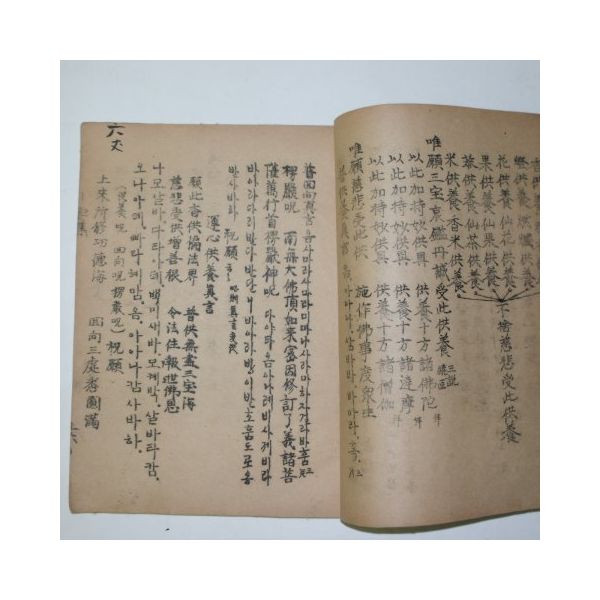 燈供養 仙燈供養
花供養 仙花供養
果供養 仙果供養
茶供養 仙茶供養
米供養 香米供養
不捨慈悲受此供養
唯願三宝哀鑑丹誠受此供養 三説
以此加持妙供具 供養十方諸佛陀 拜
以此加持妙供具 供養十方諸達摩 拜
以此加持妙供具 供養十方諸僧伽 拜
唯願慈悲受此供 施作佛事度衆生
普供養真言
普回向真言 옴 사마라 사마라 미마나 사라마하 자거라바 훔 三
楞嚴呪 南無大佛頂如來密因修訂了義諸菩
薩萬行首楞嚴神呪 다야타 옴 아나례 비사제 비라
바아라 다리 반다 반다니 바아라 방이 반 호훔 도로옹
박 사바하 祝願
運心供養真言
願此香供徧法界 普供無盡三宝海
慈悲受供增善根 令法住報世佛恩
나모 살바다타아제. 백미 새바. 모계박. 살바타캄.
오나아제. 빠타혜맘. 옴. 아아나캄 사바하
(供養呪 回向呪 楞嚴呪) 祝願
上來所修功德海 回向三處悉圓滿